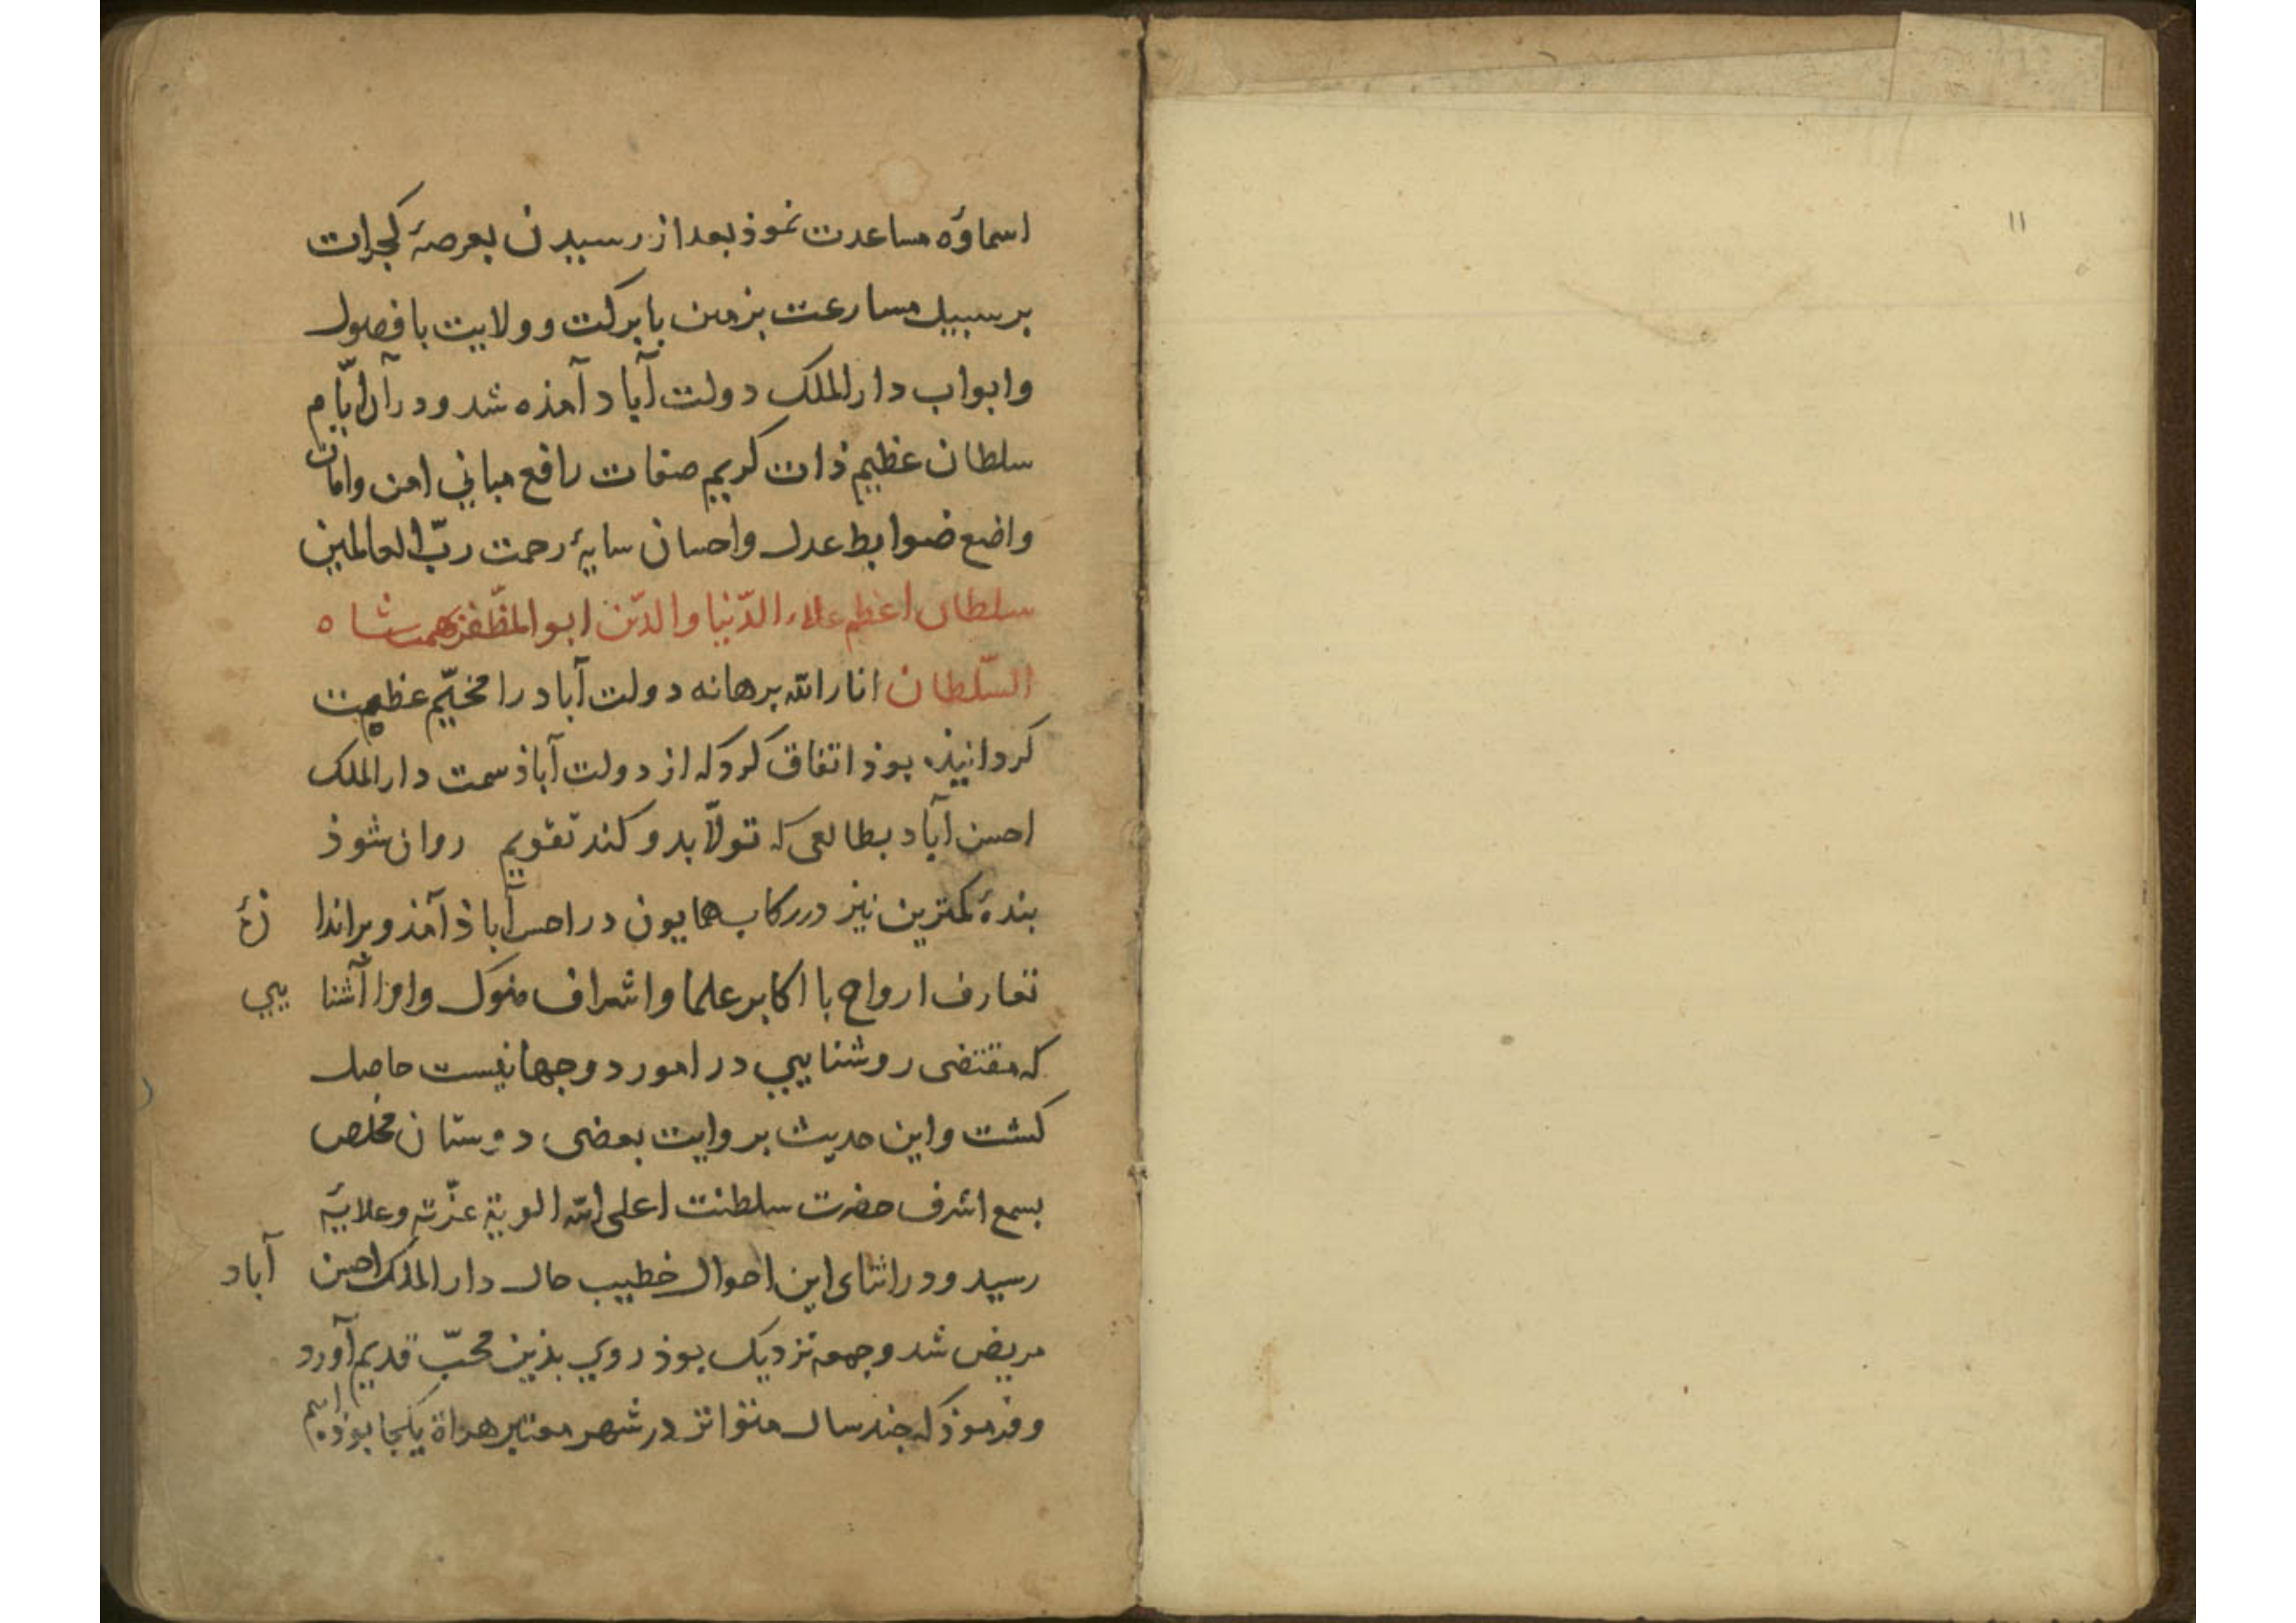 ۱۱
اسماؤه مساعدت نموذ بعد از رسیدن بعرصهٔ کجرات
بر سبیل مسارعت بزمین بابرکت و ولایت با فصول
وابواب دار الملک دولت آباد آمذه شد ودر آن ایّام
سلطان عظیم ذات کریم صفات رافع مباني امن وامان
واضع ضوابط عدل واحسان سایهٔ رحمت ربّ العالمین
سلطان اعظم علاء الدّنیا والدّین ابو المظّفر بهمنشاه
السّلطان انار الله برهانه دولت آباد را مخیّم عظمت
کردانیذه بوذ اتفاق کرد که از دولت آباذ سمت دار الملک
احسن آباد بطالعی که تولّا بدو کند تقویم روان شوذ
بندهٔ کمترین نیز در رکاب همایون در احسن آباذ آمذ وبر اندازهٔ
تعارف ارواح با اکابر علما واشراف ملوک وامرا آشنایي
که مقتضی روشنایي در امور دوجهانیست حاصل
کشت واین حدیث بروایت بعضی دوستان مخلص
بسمع اشرف حضرت سلطنت اعلی الله الویة عزّته وعلایهٔ
رسید ودر اثنای این احوال خطیب حال دار الملک احسن آباد
مریض شد وجمعه نزدیک بوذ روي بذین محبّ قدیم آورد
وفرموذ که جند سال متواتر در شهر معتبر هراة یکجا بوذه ایم